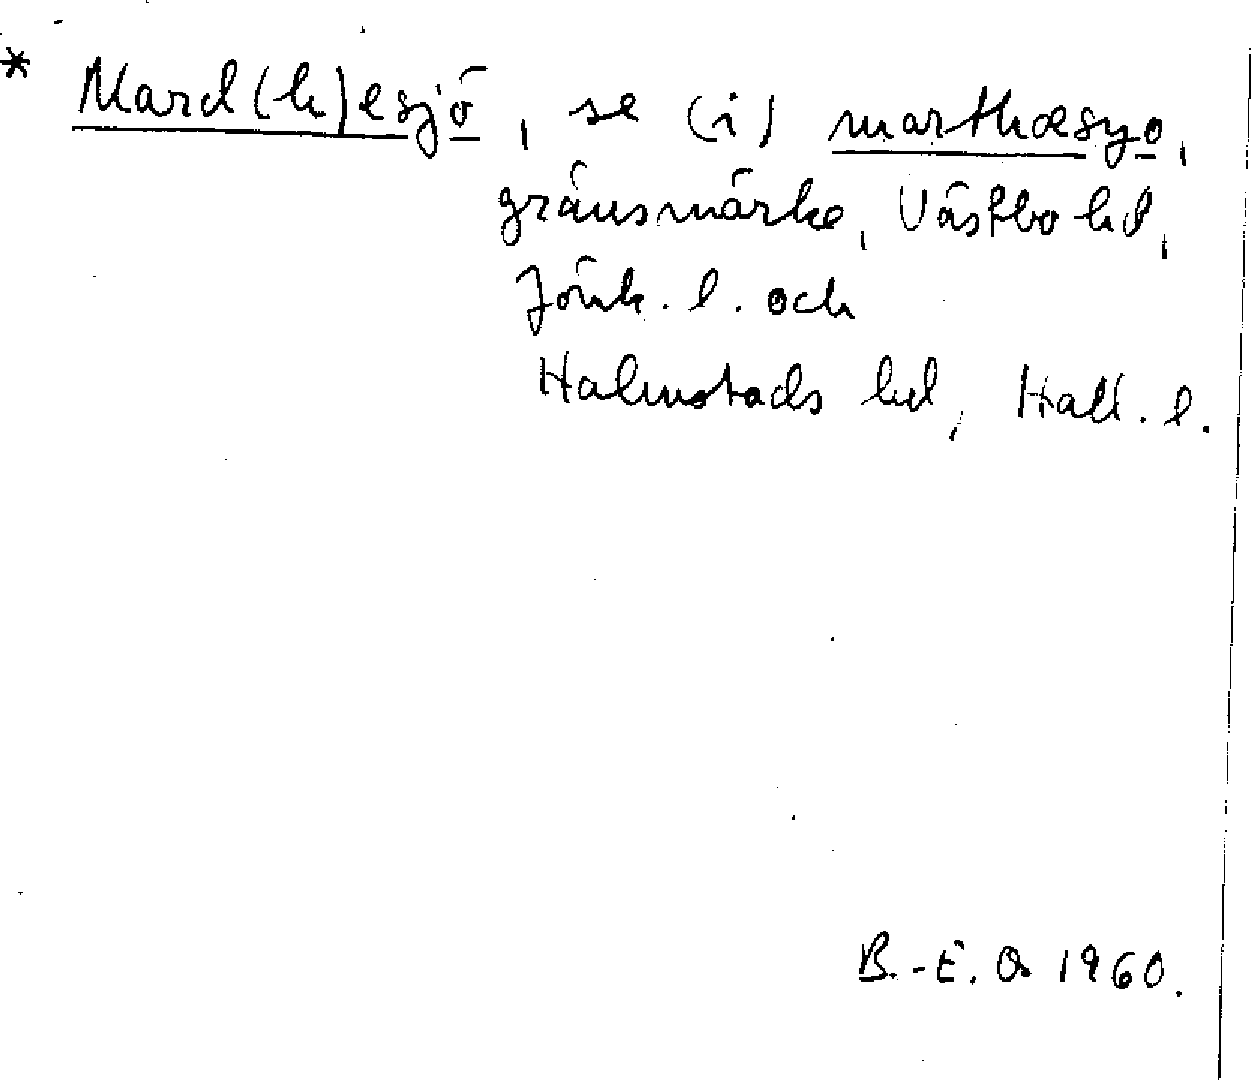 * Mard(h)esjö, se (i) marthæsyo,
gränsmärke, Västbo hd,
Jönk. l. och
Halmstads hd, Hall. l.
B.-E. O 1960.